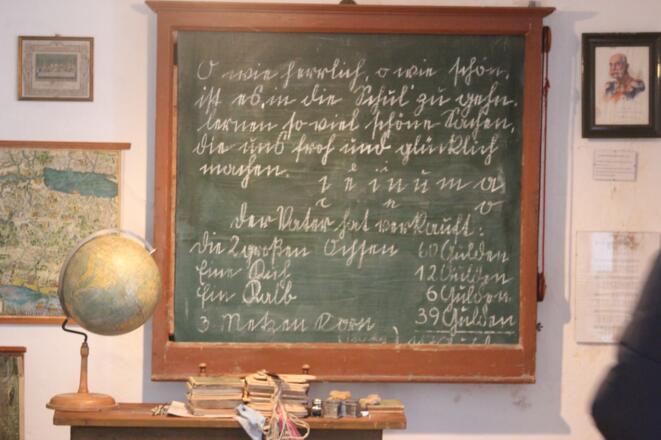 O wie herrlich, o wie schön,
ist es, in die Schul' zu gehn.
lernen so viel schöne Sachen,
die uns froh und glücklich
machen.
i e i n u m a
i e o
Der Vater hat verkauft:
die 2 großen Ochsen 60 Gulden
Eine Kuh 12 Gulden
Ein Kalb 6 Gulden
3 Metzen Korn 39 Gulden